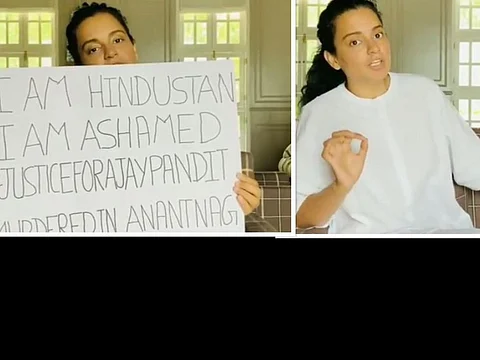 I AM HINDUSTAN
I AM ASHAMED
#JUSTICEFORAJAYPANDIT
MURDERED IN ANANTNAG